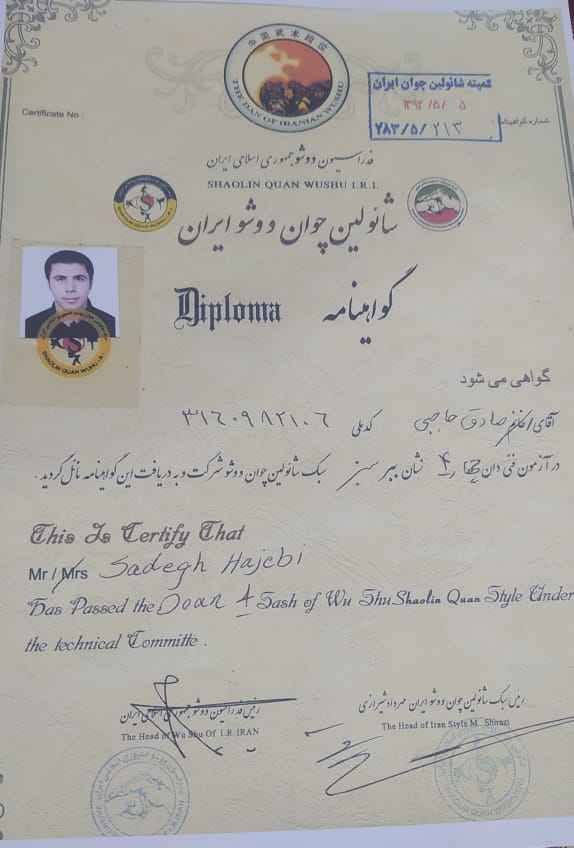 中国武术段位
THE DAN OF IRANIAN WUSHU
کمیته شائولین چوان ایران
۱۳۹۲/۵/۵
۷۸۳/۵/۲۱۳
Certificate No :
شماره گواهینامه :
فدراسیون ووشو جمهوری اسلامی ایران
SHAOLIN QUAN WUSHU I.R.I.
شائولین چوان ووشو ایران
Diploma گواهینامه
SHAOLIN QUAN WUSHU
گواهی می شود
آقای / خانم صادق حاجبی کدملی ۳۱۶۰۹۸۲۱۰۶
در آزمون فنی دان چهار ۴ نشان ببر سبز سبک شائولین چوان ووشو شرکت و به دریافت این گواهینامه نائل گردید .
This Is Certify That
Mr / Mrs Sadegh Hajebi
Has Passed the Doan 4 Sash of Wu Shu Shaolin Quan Style Under
the technical Committe .
رئیس فدراسیون ووشو جمهوری اسلامی ایران
The Head of Wu Shu Of I.R.IRAN
رئیس سبک شائولین چوان ووشو ایران مهرداد شیرازی
The Head of Iran Style M . Shirazi